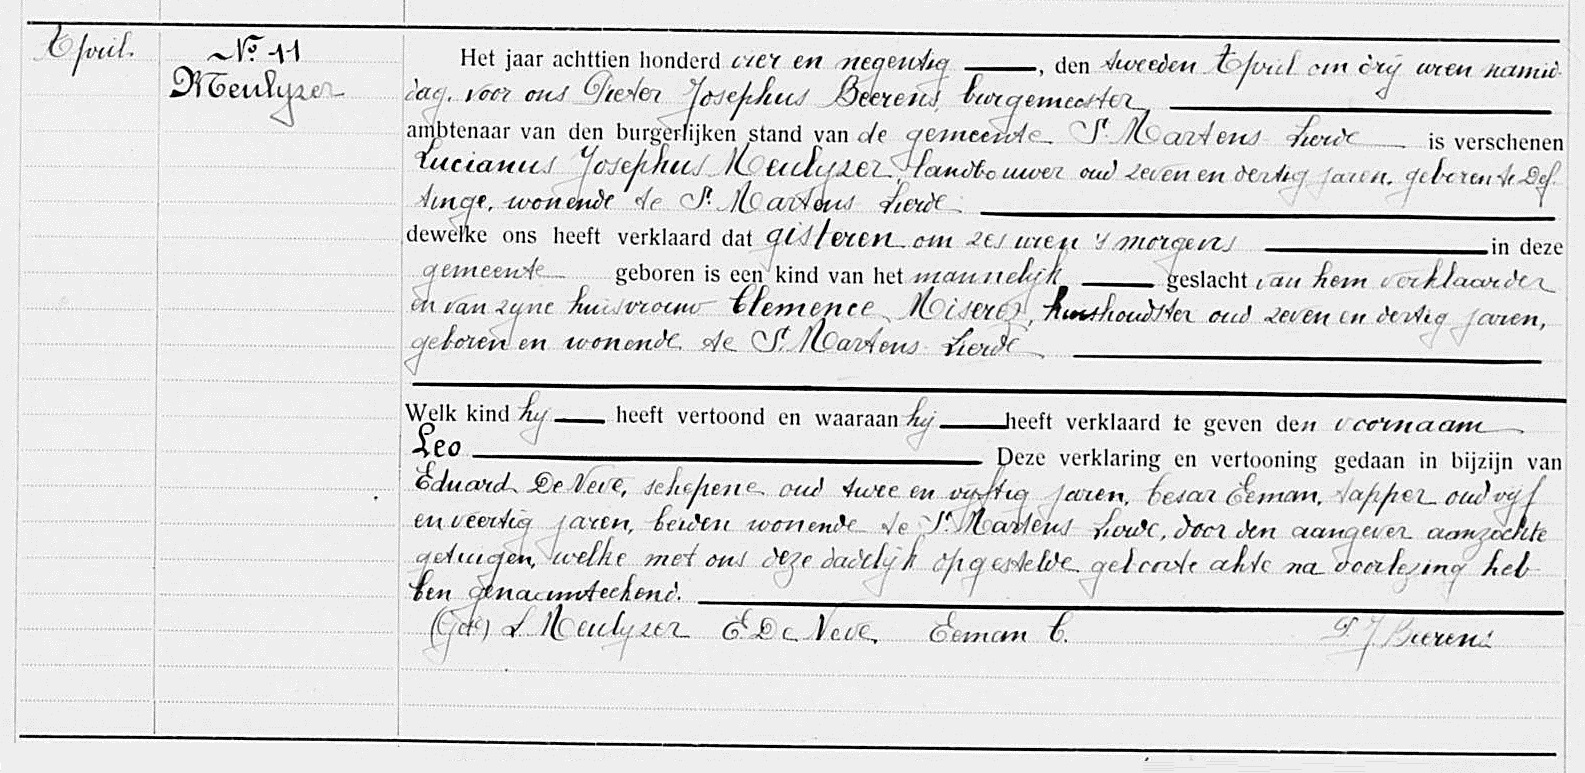 April.
No. 11
Meulyzer
Het jaar achttien honderd vier en negentig, den tweeden April om drij uren namid-
dag, voor ons Pieter Josephus Beerens, burgemeester,
ambtenaar van den burgerlijken stand van de gemeente St. Martens Lierde is verschenen
Lucianus Josephus Meulyzer, landbouwer oud zeven en dertig jaren, geboren te Def-
tinge, wonende te St. Martens Lierde
dewelke ons heeft verklaard dat gisteren om zes uren 's morgens in deze
gemeente geboren is een kind van het mannelijk geslacht van hem verklaarder
en van zyne huisvrouw Clemence Miserez, huishoudster oud zeven en dertig jaren,
geboren en wonende te St. Martens Lierde
Welk kind hy heeft vertoond en waaraan hij heeft verklaard te geven den voornaam
Leo Deze verklaring en vertooning gedaan in bijzijn van
Eduard De Neve, schepene oud twee en vyftig jaren, Cesar Eeman, tapper oud vyf
en veertig jaren, beiden wonende te St. Martens Lierde, door den aangever aanzochte
getuigen, welke met ons deze dadelijk opgestelde geboorte akte na voorlezing heb-
ben genaamteekend.
(Get) L. Meulyzer E. De Neve, Eeman C. P. J. Beerens